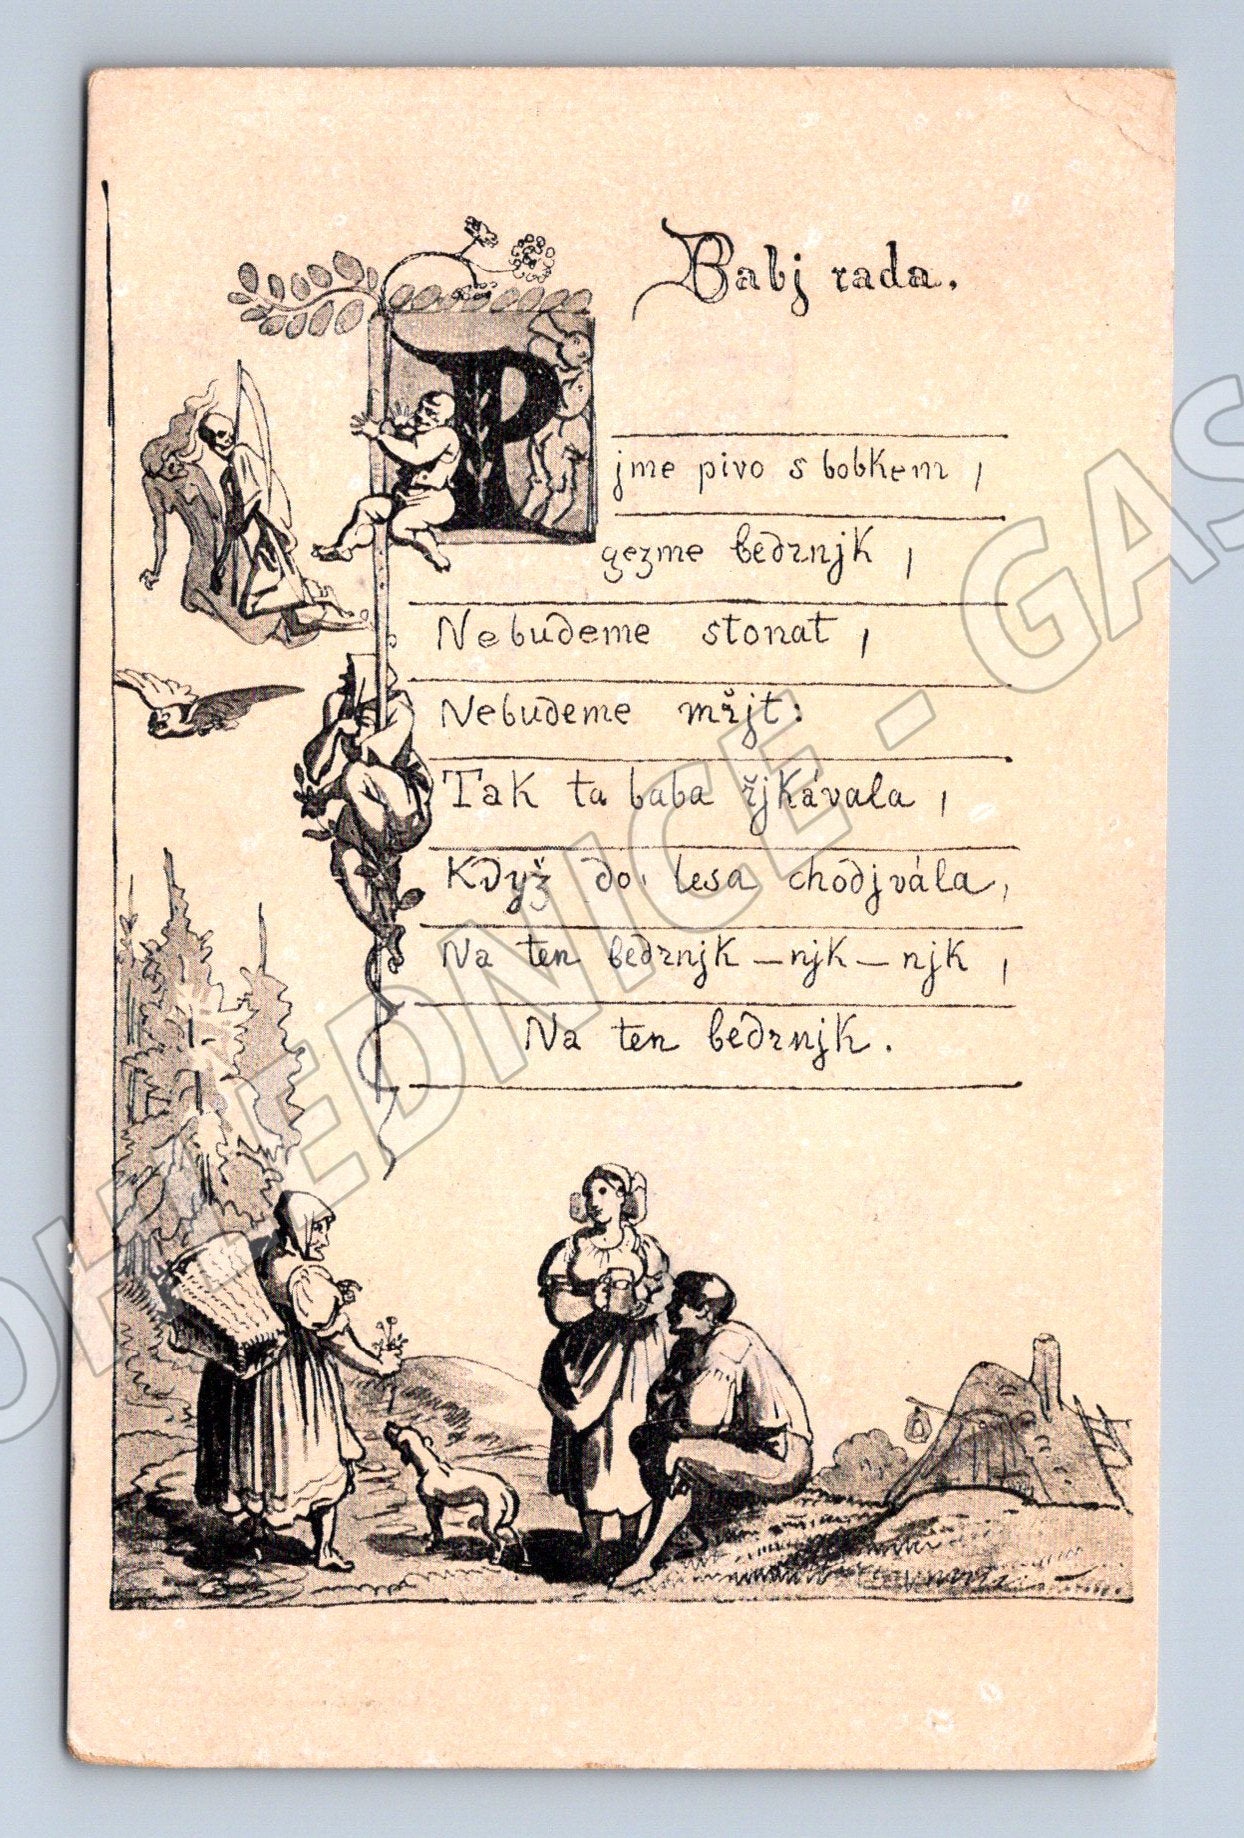 Babj rada.
Pjme pivo s bobkem,
gezme bedrnjk,
Nebudeme stonat,
Nebudeme mřjt:
Tak ta baba řjkávala,
Když do lesa chodjvála,
Na ten bedrnjk – njk – njk,
Na ten bedrnjk.
POHLEDNICE - GAS